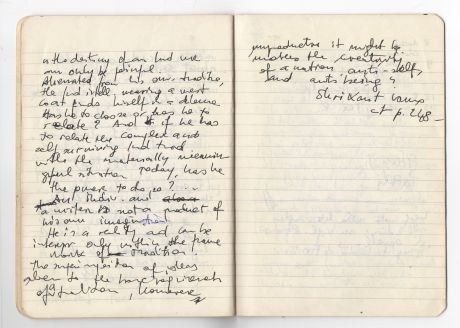 is the destiny of an Ind
can only be painful.
Alienated from his own tradition,
the Ind intell. wearing a west
coat finds himself in a dilemma
Has he to choose or has he to
relate? And if he has
to relate the complex and
self surviving Ind trad
with the materially meanin
gful situation today, has he
the power to do so? ...
an Indian and
a writer is not a product of
his own imagination
He is a reality and can be
interpr only within the frame
work of tradition!
The superimposition of ideas
alien to the basic requirements
of situation, however
unproductive it might be,
makes the creativity
of a nation anti-self
and anti being?
Shrikant Varma
cf p. 248